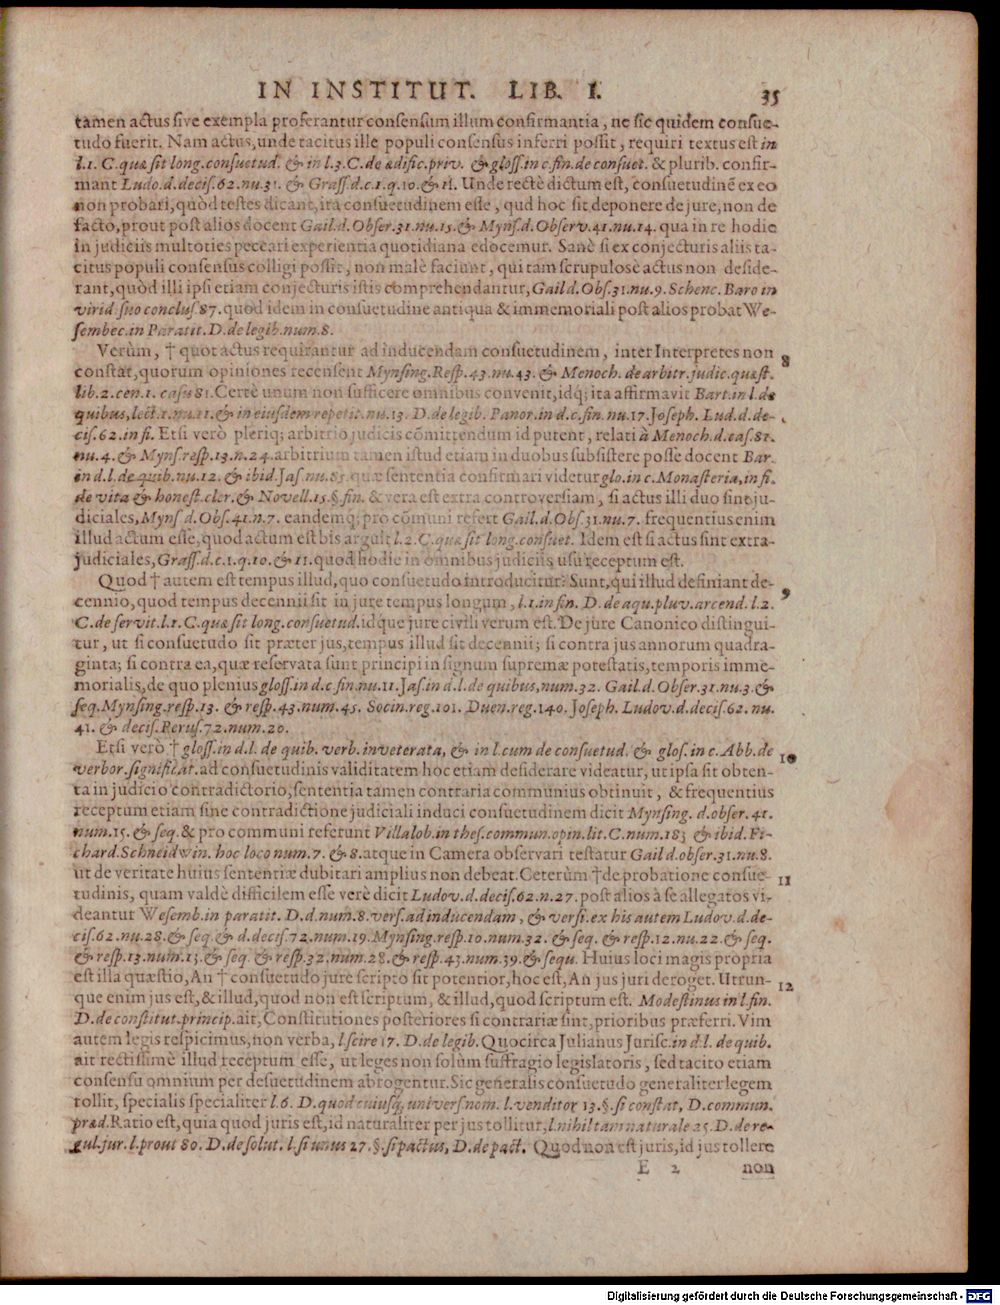 IN INSTITUT. LIB. I. 35
tamen actus sive exempla proferantur consensum illum confirmantia, ne sic quidem consue-
tudo fuerit. Nam actus, unde tacitus ille populi consensus inferri possit, requiri textus est in
l.1. C. quæ sit long. consuetud. & in l.3. C. de ædific. priv. & gloss. in c. fin. de consuet. & plurib. confir-
mant Ludo. d. decis. 62. nu. 31. & Grass. d. c. 1. q. 10. & 11. Unde rectè dictum est, consuetudinē ex eo
non probari, quòd testes dicant, ita consuetudinem esse, qud hoc sit deponere de jure, non de
facto, prout post alios docent Gail. d. Obser. 31. nu. 15. & Myns. d. Observ. 41. nu. 14. qua in re hodie
in judiciis multoties peccari experientia quotidiana edocemur. Sanè si ex conjecturis aliis ta-
citus populi consensus colligi possit, non malè faciunt, qui tam scrupulosè actus non deside-
rant, quòd illi ipsi etiam conjecturis istis comprehendantur, Gail d. Obs. 31. nu. 9. Schenc. Baro in
virid. suo conclus. 87. quod idem in consuetudine antiqua & immemoriali post alios probat We-
sembec. in Paratit. D. de legib. num. 8.
Verùm, † quot actus requirantur ad inducendam consuetudinem, inter Interpretes non 8
constat, quorum opiniones recensent Mynsing. Resp. 43. nu. 43. & Menoch. de arbitr. judic. quæst.
lib. 2. cen. 1. casu 81. Certè unum non sufficere omnibus convenit, idq; ita affirmavit Bart. in l. de
quibus, lect. 1. nu. 11. & in eiusdem repetit. nu. 13. D. de legib. Panor. in d. c. fin. nu. 17. Joseph. Lud. d. de-
cis. 62. in fi. Etsi verò pleriq; arbitrio judicis cōmittendum id putent, relati à Menoch. d. cas. 81.
nu. 4. & Myns. resp. 13. n. 24. arbitrium tamen istud etiam in duobus subsistere posse docent Bar.
in d. l. de quib. nu. 12. & ibid. Jas. nu. 85. quæ sententia confirmari videtur glo. in c. Monasteria, in fi.
de vita & honest. cler. & Novell. 15. §. fin. & vera est extra controversiam, si actus illi duo sint ju-
diciales, Myns. d. Obs. 41. n. 7. eandemq; pro cōmuni refert Gail. d. Obs. 31. nu. 7. frequentius enim
illud actum esse, quod actum est bis arguit l. 2. C. quæ sit long. consuet. Idem est si actus sint extra-
judiciales, Grass. d. c. 1. q. 10. & 11. quod hodie in omnibus judiciis usu receptum est.
Quod † autem est tempus illud, quo consuetudo introducitur? Sunt, qui illud definiant de- 9
cennio, quod tempus decennii sit in jure tempus longum, l. 1. in fin. D. de aqu. pluv. arcend. l. 2.
C. de servit. l. 1. C. quæ sit long. consuetud. idque jure civili verum est. De jure Canonico distingui-
tur, ut si consuetudo sit præter jus, tempus illud sit decennii; si contra jus annorum quadra-
ginta; si contra ea, quæ reservata sunt principi in signum supremæ potestatis, temporis imme-
morialis, de quo plenius gloss. in d. c. fin. nu. 11. Jas. in d. l. de quibus, num. 32. Gail. d. Obser. 31. nu. 3. &
seq. Mynsing. resp. 13. & resp. 43. num. 45. Socin. reg. 101. Duen. reg. 140. Joseph. Ludov. d. decis. 62. nu.
41. & decis. Perus. 72. num. 20.
Etsi verò † gloss. in d. l. de quib. verb. inveterata, & in l. cum de consuetud. & glos. in c. Abb. de 10
verbor. significat. ad consuetudinis validitatem hoc etiam desiderare videatur, ut ipsa sit obten-
ta in judicio contradictorio, sententia tamen contraria communius obtinuit, & frequentius
receptum etiam sine contradictione judiciali induci consuetudinem dicit Mynsing. d. obser. 41.
num. 15. & seq. & pro communi referunt Villalob. in thes. commun. opin. lit. C. num. 183 & ibid. Fi-
chard. Schneidwin. hoc loco num. 7. & 8. atque in Camera observari testatur Gail d. obser. 31. nu. 8.
ut de veritate huius sententiæ dubitari amplius non debeat. Ceterùm † de probatione consue- 11
tudinis, quam valdè difficilem esse verè dicit Ludov. d. decis. 62. n. 27. post alios à se allegatos vi-
deantur Wesemb. in paratit. D. d. num. 8. vers. ad inducendam, & versi. ex his autem Ludov. d. de-
cis. 62. nu. 28. & seq. & d. decis. 72. num. 19. Mynsing. resp. 10. num. 32. & seq. & resp. 12. nu. 22. & seq.
& resp. 13. num. 13. & seq. & resp. 32. num. 28. & resp. 43. num. 39. & sequ. Huius loci magis propria
est illa quæstio, An † consuetudo jure scripto sit potentior, hoc est, An jus juri deroget. Utrun- 12
que enim jus est, & illud, quod non est scriptum, & illud, quod scriptum est. Modestinus in l. fin.
D. de constitut. princip. ait, Constitutiones posteriores si contrariæ sint, prioribus præferri. Vim
autem legis respicimus, non verba, l. scire 17. D. de legib. Quocirca Julianus Jurisc. in d. l. de quib.
ait rectissimè illud receptum esse, ut leges non solùm suffragio legislatoris, sed tacito etiam
consensu omnium per desuetudinem abrogentur. Sic generalis consuetudo generaliter legem
tollit, specialis specialiter l. 6. D. quod cuiusq; univers. nom. l. venditor 13. §. si constat, D. commun.
præd. Ratio est, quia quod juris est, id naturaliter per jus tollitur, l. nihil tam naturale 25. D. de re-
gul. jur. l. prout 80. D. de solut. l. si unus 27. §. si pactus, D. de pact. Quod non est juris, id jus tollere
E 2 non
Digitalisierung gefördert durch die Deutsche Forschungsgemeinschaft - DFG